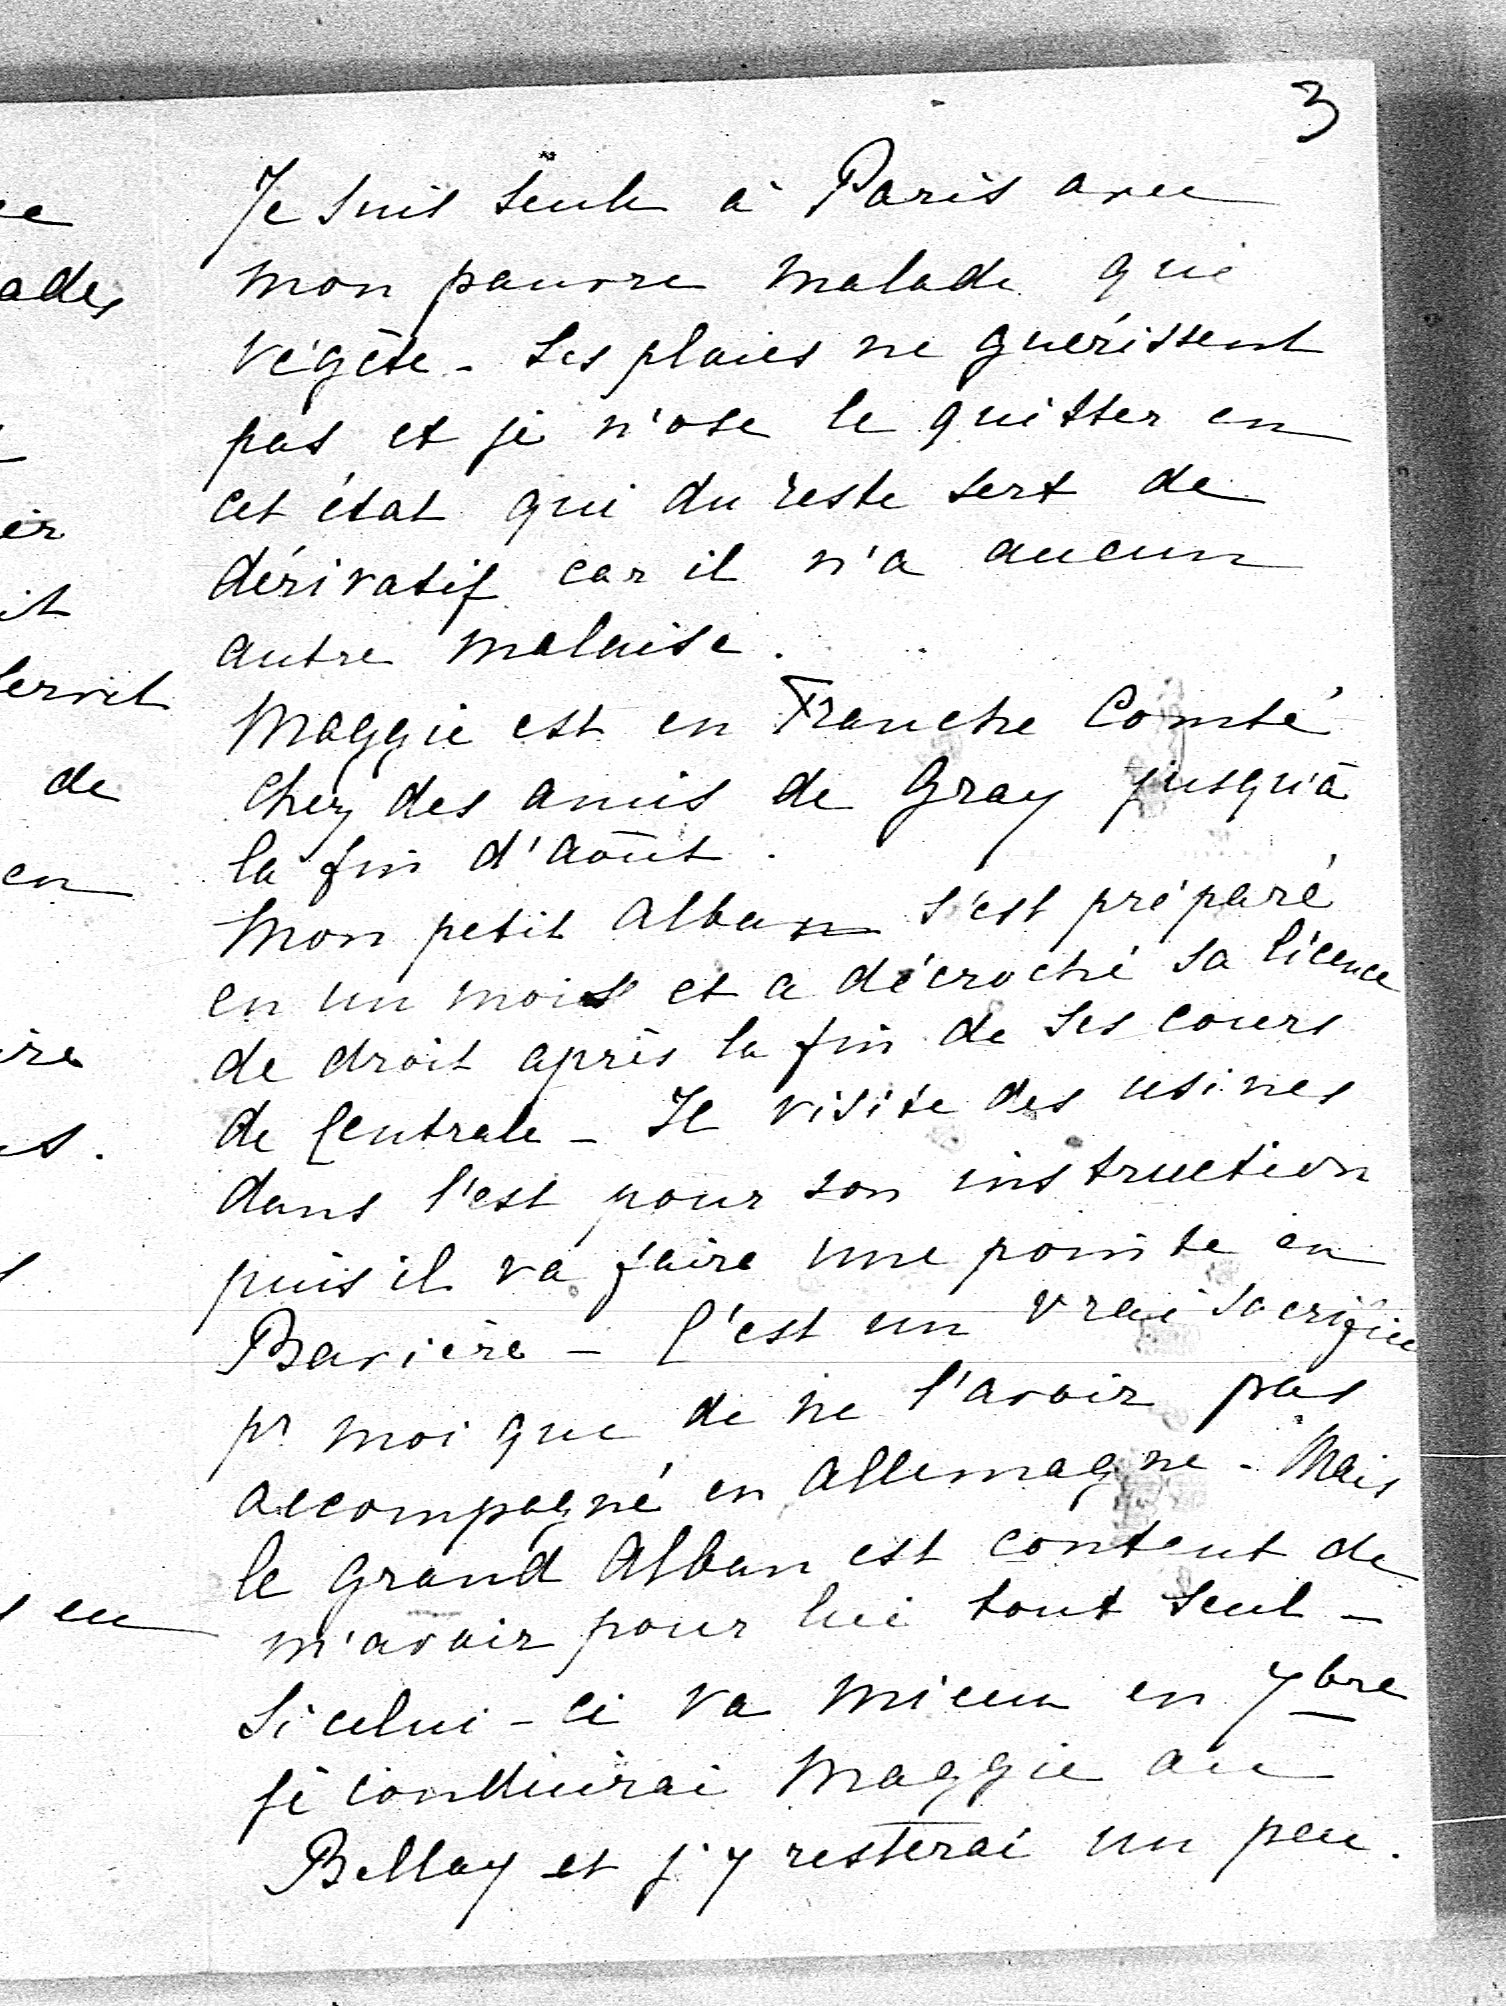 3
Je suis seule à Paris avec
mon pauvre malade qui
végète - ses plaies ne guérissent
pas et je n'ose le quitter en
cet état qui du reste sert de
dérivatif car il n'a aucun
autre malaise.
Maggie est en Franche Comté
chez des amis de Gray jusqu'à
la fin d'août.
Mon petit Alban s'est préparé
en un mois et a décroché sa licence
de droit après la fin de ses cours
de Centrale - Il visite des usines
dans l'est pour son instruction
puis il va faire une pointe en
Bavière - C'est un vrai sacrifice
pr moi que de ne l'avoir pas
accompagné en Allemagne - Mais
le grand Alban est content de
m'avoir pour lui tout seul -
Si celui-ci va mieux en 7bre
je conduirai Maggie au
Bellay et j'y resterai un peu.
ades
de
en